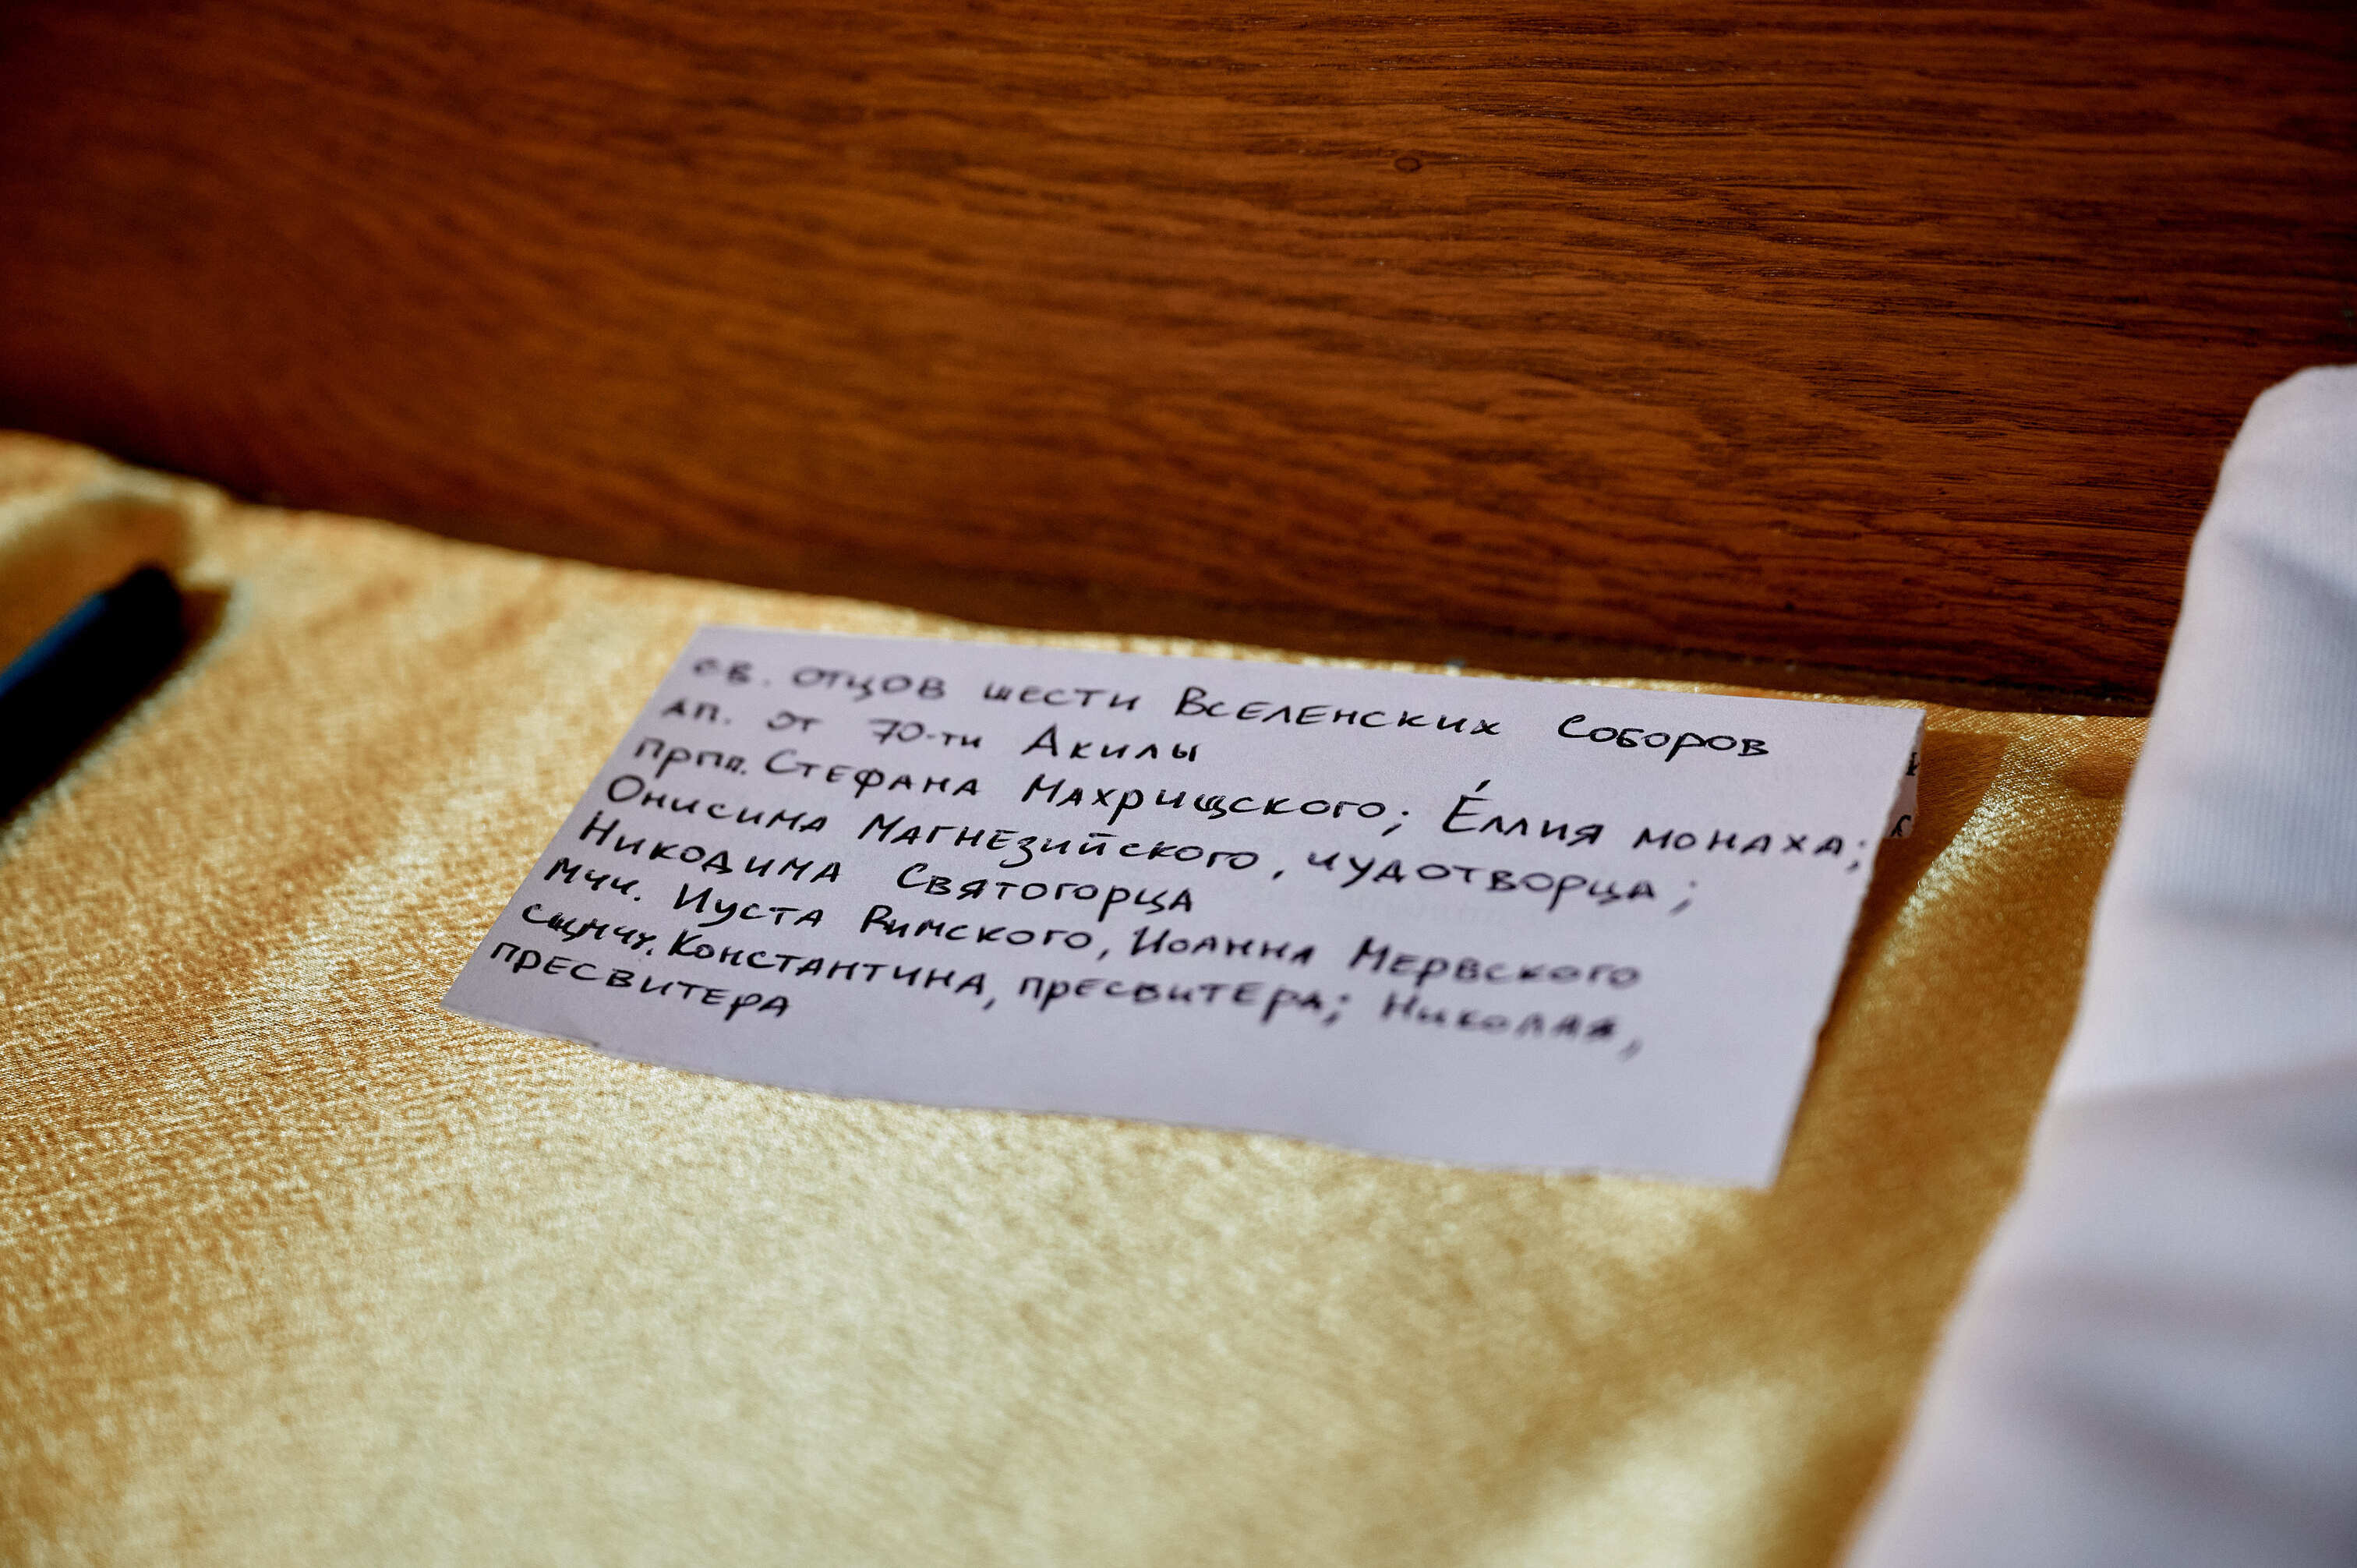 св. отцов шести Вселенских Соборов
ап. от 70-ти Акилы
прпп. Стефана Махрищского; Е́ллия монаха;
Онисима Магнезийского, чудотворца;
Никодима Святогорца
мчч. Иуста Римского, Иоанна Мервского
сщмчч. Константина, пресвитера; Николая,
пресвитера